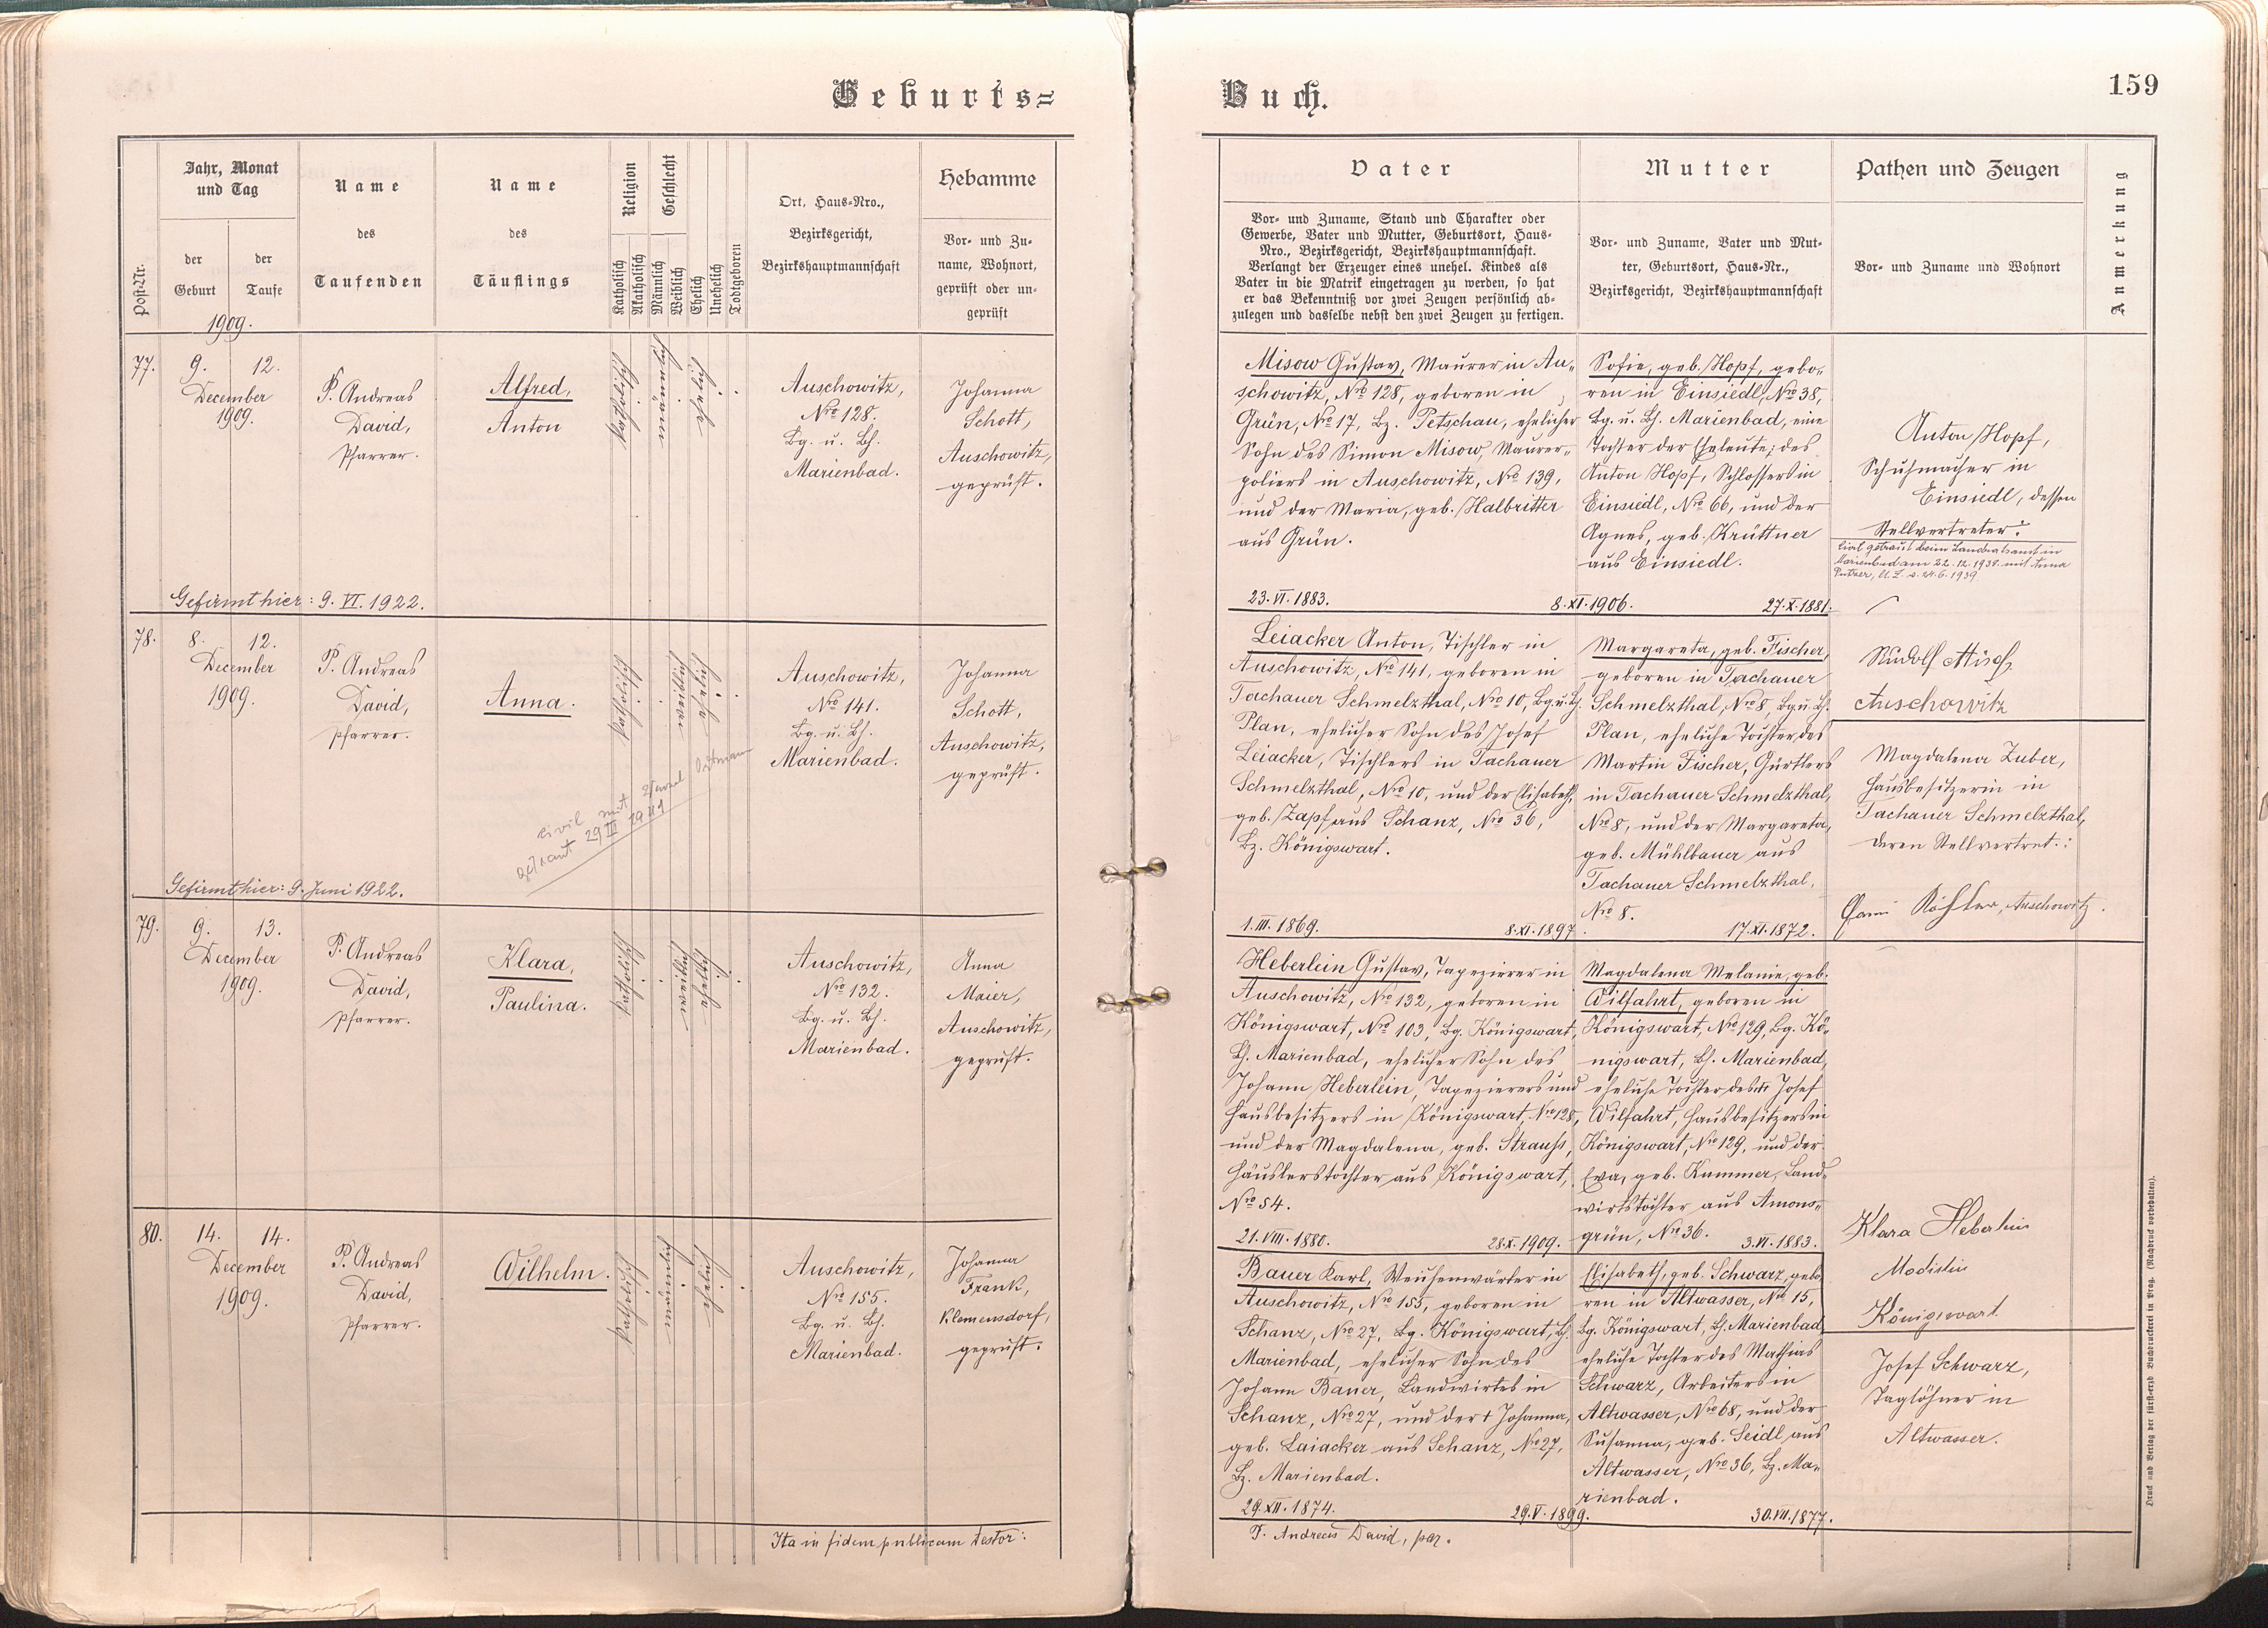 Geburts=
Buch.
159
Post-Nr.
Jahr, Monat
und Tag
der
Geburt
der
Taufe
1909.
Name
des
Taufenden
Name
des
Täuflings
Religion
Katholisch
Akatholisch
Geschlecht
Männlich
Weiblich
Ehelich
Unehelich
Todtgeboren
Ort, Haus-Nro.,
Bezirksgericht,
Bezirkshauptmannschaft
Hebamme
Vor- und Zu-
name, Wohnort,
geprüft oder un-
geprüft
Vater
Vor- und Zuname, Stand und Charakter oder
Gewerbe, Vater und Mutter, Geburtsort, Haus-
Nro., Bezirksgericht, Bezirkshauptmannschaft.
Verlangt der Erzeuger eines unehel. Kindes als
Vater in die Matrik eingetragen zu werden, so hat
er das Bekenntniß vor zwei Zeugen persönlich ab-
zulegen und dasselbe nebst den zwei Zeugen zu fertigen.
Mutter
Vor- und Zuname, Vater und Mut-
ter, Geburtsort, Haus-Nr.,
Bezirksgericht, Bezirkshauptmannschaft
Pathen und Zeugen
Vor- und Zuname und Wohnort
Anmerkung
77.
9. 12.
December
1909.
P. Andreas
David,
Pfarrer.
Alfred,
Anton
katholisch
männlich
ehelich
Auschowitz,
Nro 128.
Bg. u. Bh.
Marienbad.
Johanna
Schott,
Auschowitz,
geprüft.
Gefirmt hier: 9. VI. 1922.
Misow Gustav, Maurer in Au-
schowitz, Nro 128, geboren in
Grün, No 17, Bz. Petschau, ehelicher
Sohn des Simon Misow, Maurer-
poliers in Auschowitz, No 139,
und der Maria, geb. Halbritter
aus Grün.
23. VI. 1883.
8. XI. 1906.
Sofie, geb. Hopf, gebo-
ren in Einsiedl, No 38,
Bg. u. Bh. Marienbad, eine
Tochter der Eheleute: des
Anton Hopf, Schlossers in
Einsiedl, No 66, und der
Agnes, geb. Krüttner
aus Einsiedl.
27. X. 1881.
Anton Hopf,
Schuhmacher in
Einsiedl, dessen
Stellvertreter:
Civil getraut beim Landratsamt in
Marienbad am 22. 12. 1938 mit Anna
24. 6. 1939
78.
8. 12.
December
1909.
P. Andreas
David,
Pfarrer.
Anna.
katholisch
weiblich
ehelich
Auschowitz,
Nro 141.
Bg. u. Bh.
Marienbad.
Johanna
Schott,
Auschowitz,
geprüft.
civil mit
getraut 29 III 1941
Gefirmt hier: 9. Juni 1922.
Leiacker Anton, Tischler in
Auschowitz, Nro 141, geboren in
Tachauer Schmelzthal, Nro 10, Bg. u. Bh.
Plan, ehelicher Sohn des Josef
Leiacker, Tischlers in Tachauer
Schmelzthal, Nro 10, und der Elisabeth,
geb. Zapf aus Schanz, Nro 36,
Bz. Königswart.
1. III. 1869.
8. XI. 1897.
Margareta, geb. Fischer,
geboren in Tachauer
Schmelzthal, Nro 8, Bg. u. Bh.
Plan, eheliche Tochter des
Martin Fischer, Gürtlers
in Tachauer Schmelzthal,
No 8, und der Margareta,
geb. Mühlbauer aus
Tachauer Schmelzthal,
Nro 8.
17. XI. 1872.
Rudolf Misof
Auschowitz
Magdalena Zuber,
Hausbesitzerin in
Tachauer Schmelzthal,
deren Stellvertret.:
Köhler, Auschowitz.
79.
9. 13.
December
1909.
P. Andreas
David,
Pfarrer.
Klara,
Paulina.
katholisch
weiblich
ehelich
Auschowitz,
No 132.
Bg. u. Bh.
Marienbad.
Anna
Maier,
Auschowitz,
geprüft.
Heberlein Gustav, Tapezierer in
Auschowitz, Nro 132, geboren in
Königswart, No 103, Bg. Königswart,
Bh. Marienbad, ehelicher Sohn des
Johann Heberlein, Tapezierers und
Hausbesitzers in Königswart, Nro 128,
und der Magdalena, geb. Strauss,
Häuslerstochter aus Königswart,
Nro 54.
21. VIII. 1880.
28. X. 1909.
Magdalena Melanie, geb.
Wilfahrt, geboren in
Königswart, No 129, Bg. Kö-
nigswart, Bh. Marienbad,
eheliche Tochter des † Josef
Wilfahrt, Hausbesitzers in
Königswart, Nro 129, und der
Eva, geb. Kummer, Land-
wirtstochter aus Amons-
grün, Nro 36.
3. VI. 1883.
Klara Heberlein
Modistin
Königswart
80.
14. 14.
December
1909.
P. Andreas
David,
Pfarrer.
Wilhelm.
katholisch
männlich
ehelich
Auschowitz,
No 155.
Bg. u. Bh.
Marienbad.
Johanna
Frank,
Klemensdorf,
geprüft.
Bauer Karl, Weichenwärter in
Auschowitz, Nro 155, geboren in
Schanz, Nro 27, Bg. Königswart, Bh.
Marienbad, ehelicher Sohn des
Johann Bauer, Landwirtes in
Schanz, Nro 27, und der † Johanna,
geb. Laiacker aus Schanz, No 27,
Bz. Marienbad.
29. XII. 1874.
29. V. 1899.
Elisabeth, geb. Schwarz, gebo-
ren in Altwasser, Nro 15,
Bg. Königswart, Bh. Marienbad,
eheliche Tochter des Mathias
Schwarz, Arbeiters in
Altwasser, Nro 68, und der
Susanna, geb. Seidl aus
Altwasser, Nro 36, Bz. Ma-
rienbad.
30. VII. 1877.
Josef Schwarz,
Taglöhner in
Altwasser.
Ita in fidem publicam testor:
P. Andreas David, par.
Druck und Verlag der fürst-erzb. Buchdruckerei in Prag. (Nachdruck vorbehalten).